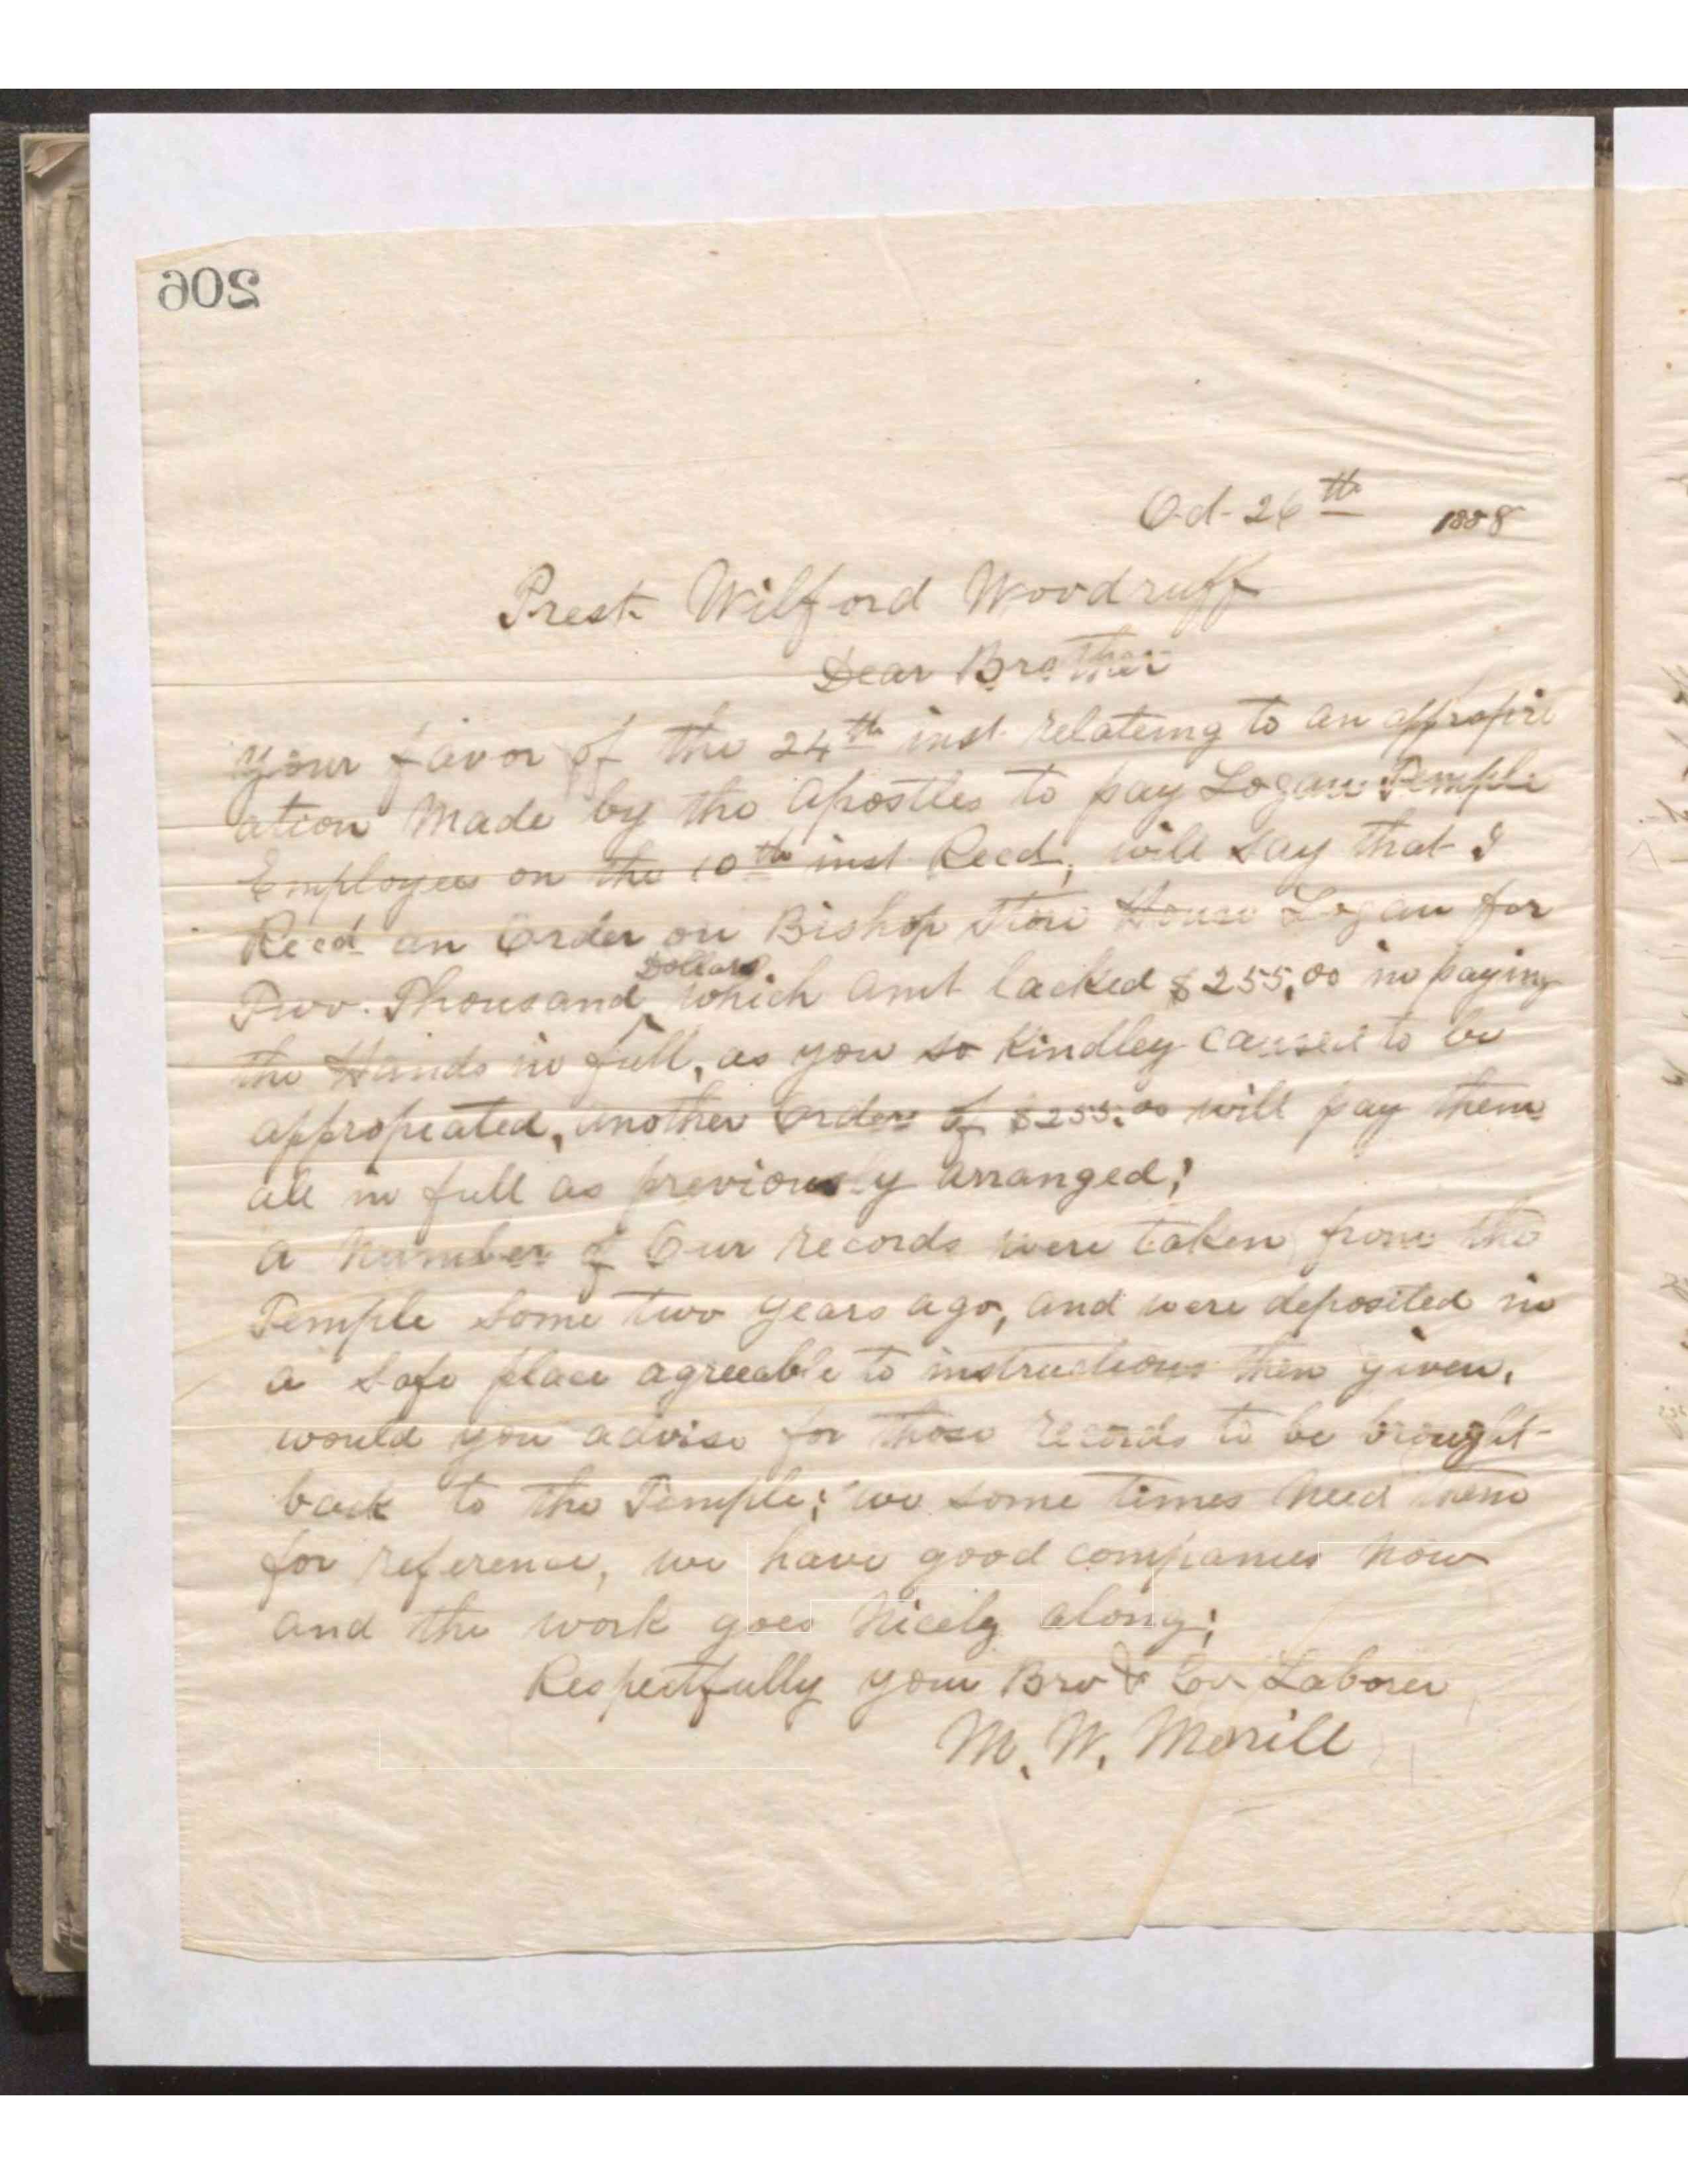 206
Oct- 26th 1888
Prest. Wilford Woodruff
Dear Brother
Your favor of the 24th inst. relateing to an appropri
ation Made by the Apostles to pay Logan Temple
Employees on the 10th inst. Recd, will say that I
Recd an Order on Bishop Store House Logan for
Two Thousand Dollars, which amt lacked $255.00 in paying
the Hands in full, as you so Kindley caused to be
appropeated, another order of $255.00 will pay them
all in full as previously arranged;
A Number of Our records were taken from the
Temple Some two years ago, and were deposited in
a Safe place agreeable to instructions then given,
would you advise for those records to be brought
back to the Temple; we some times Need them
for reference, we have good companies Now
and the work goes Nicely along;
Respectfully your Bro & Co. Laborer
M. W. Merrill